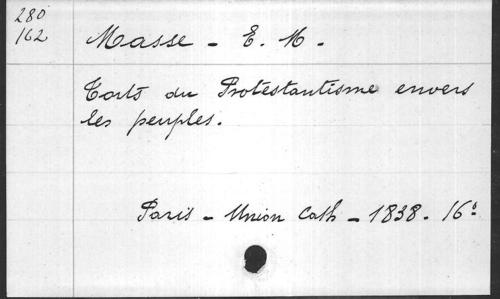 280
162
Masse - E. M -
Torts du Protestantisme envers
les peuples.
Paris - Union Cath - 1838 - 16º